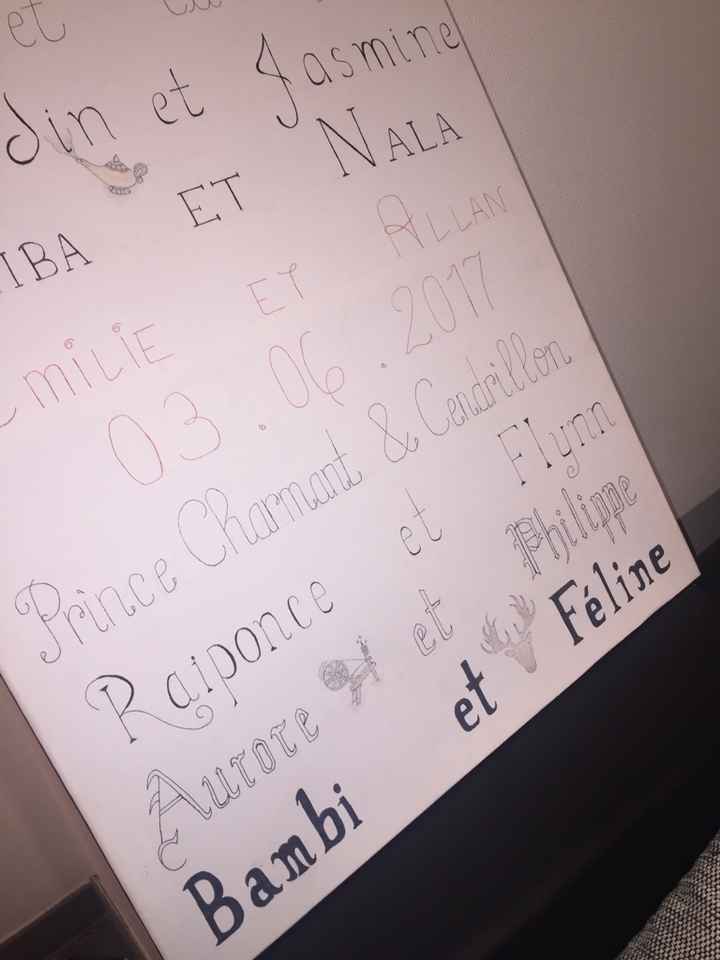 et
din et Jasmine
IBA ET NALA
MiLiE ET ALLAN
03.06.2017
Prince Charmant & Cendrillon
Raiponce et Flynn
Aurore et Philippe
Bambi et Féline